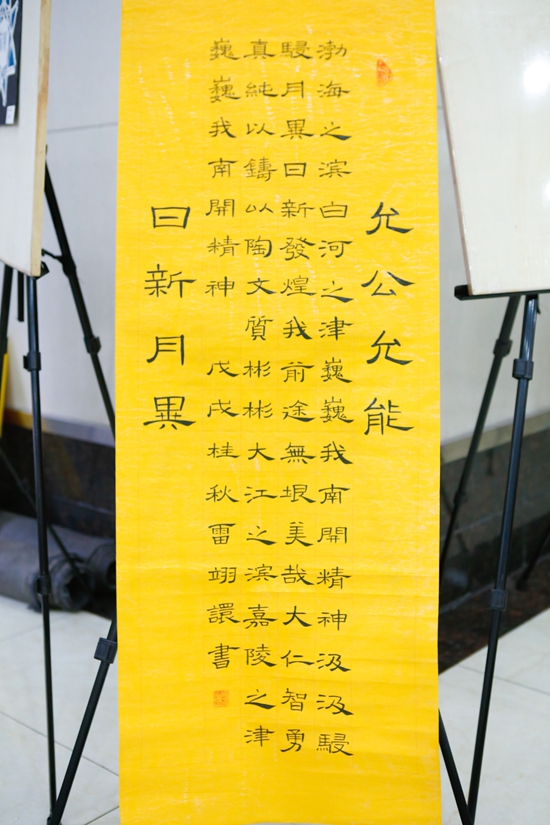 允公允能
渤海之滨白河之津巍巍我南開精神汲汲駸
駸月異日新發煌我前途無垠美哉大仁智勇
真純以鑄以陶文質彬彬大江之滨嘉陵之津
巍巍我南開精神 戊戌桂秋雷翊譞書
日新月異